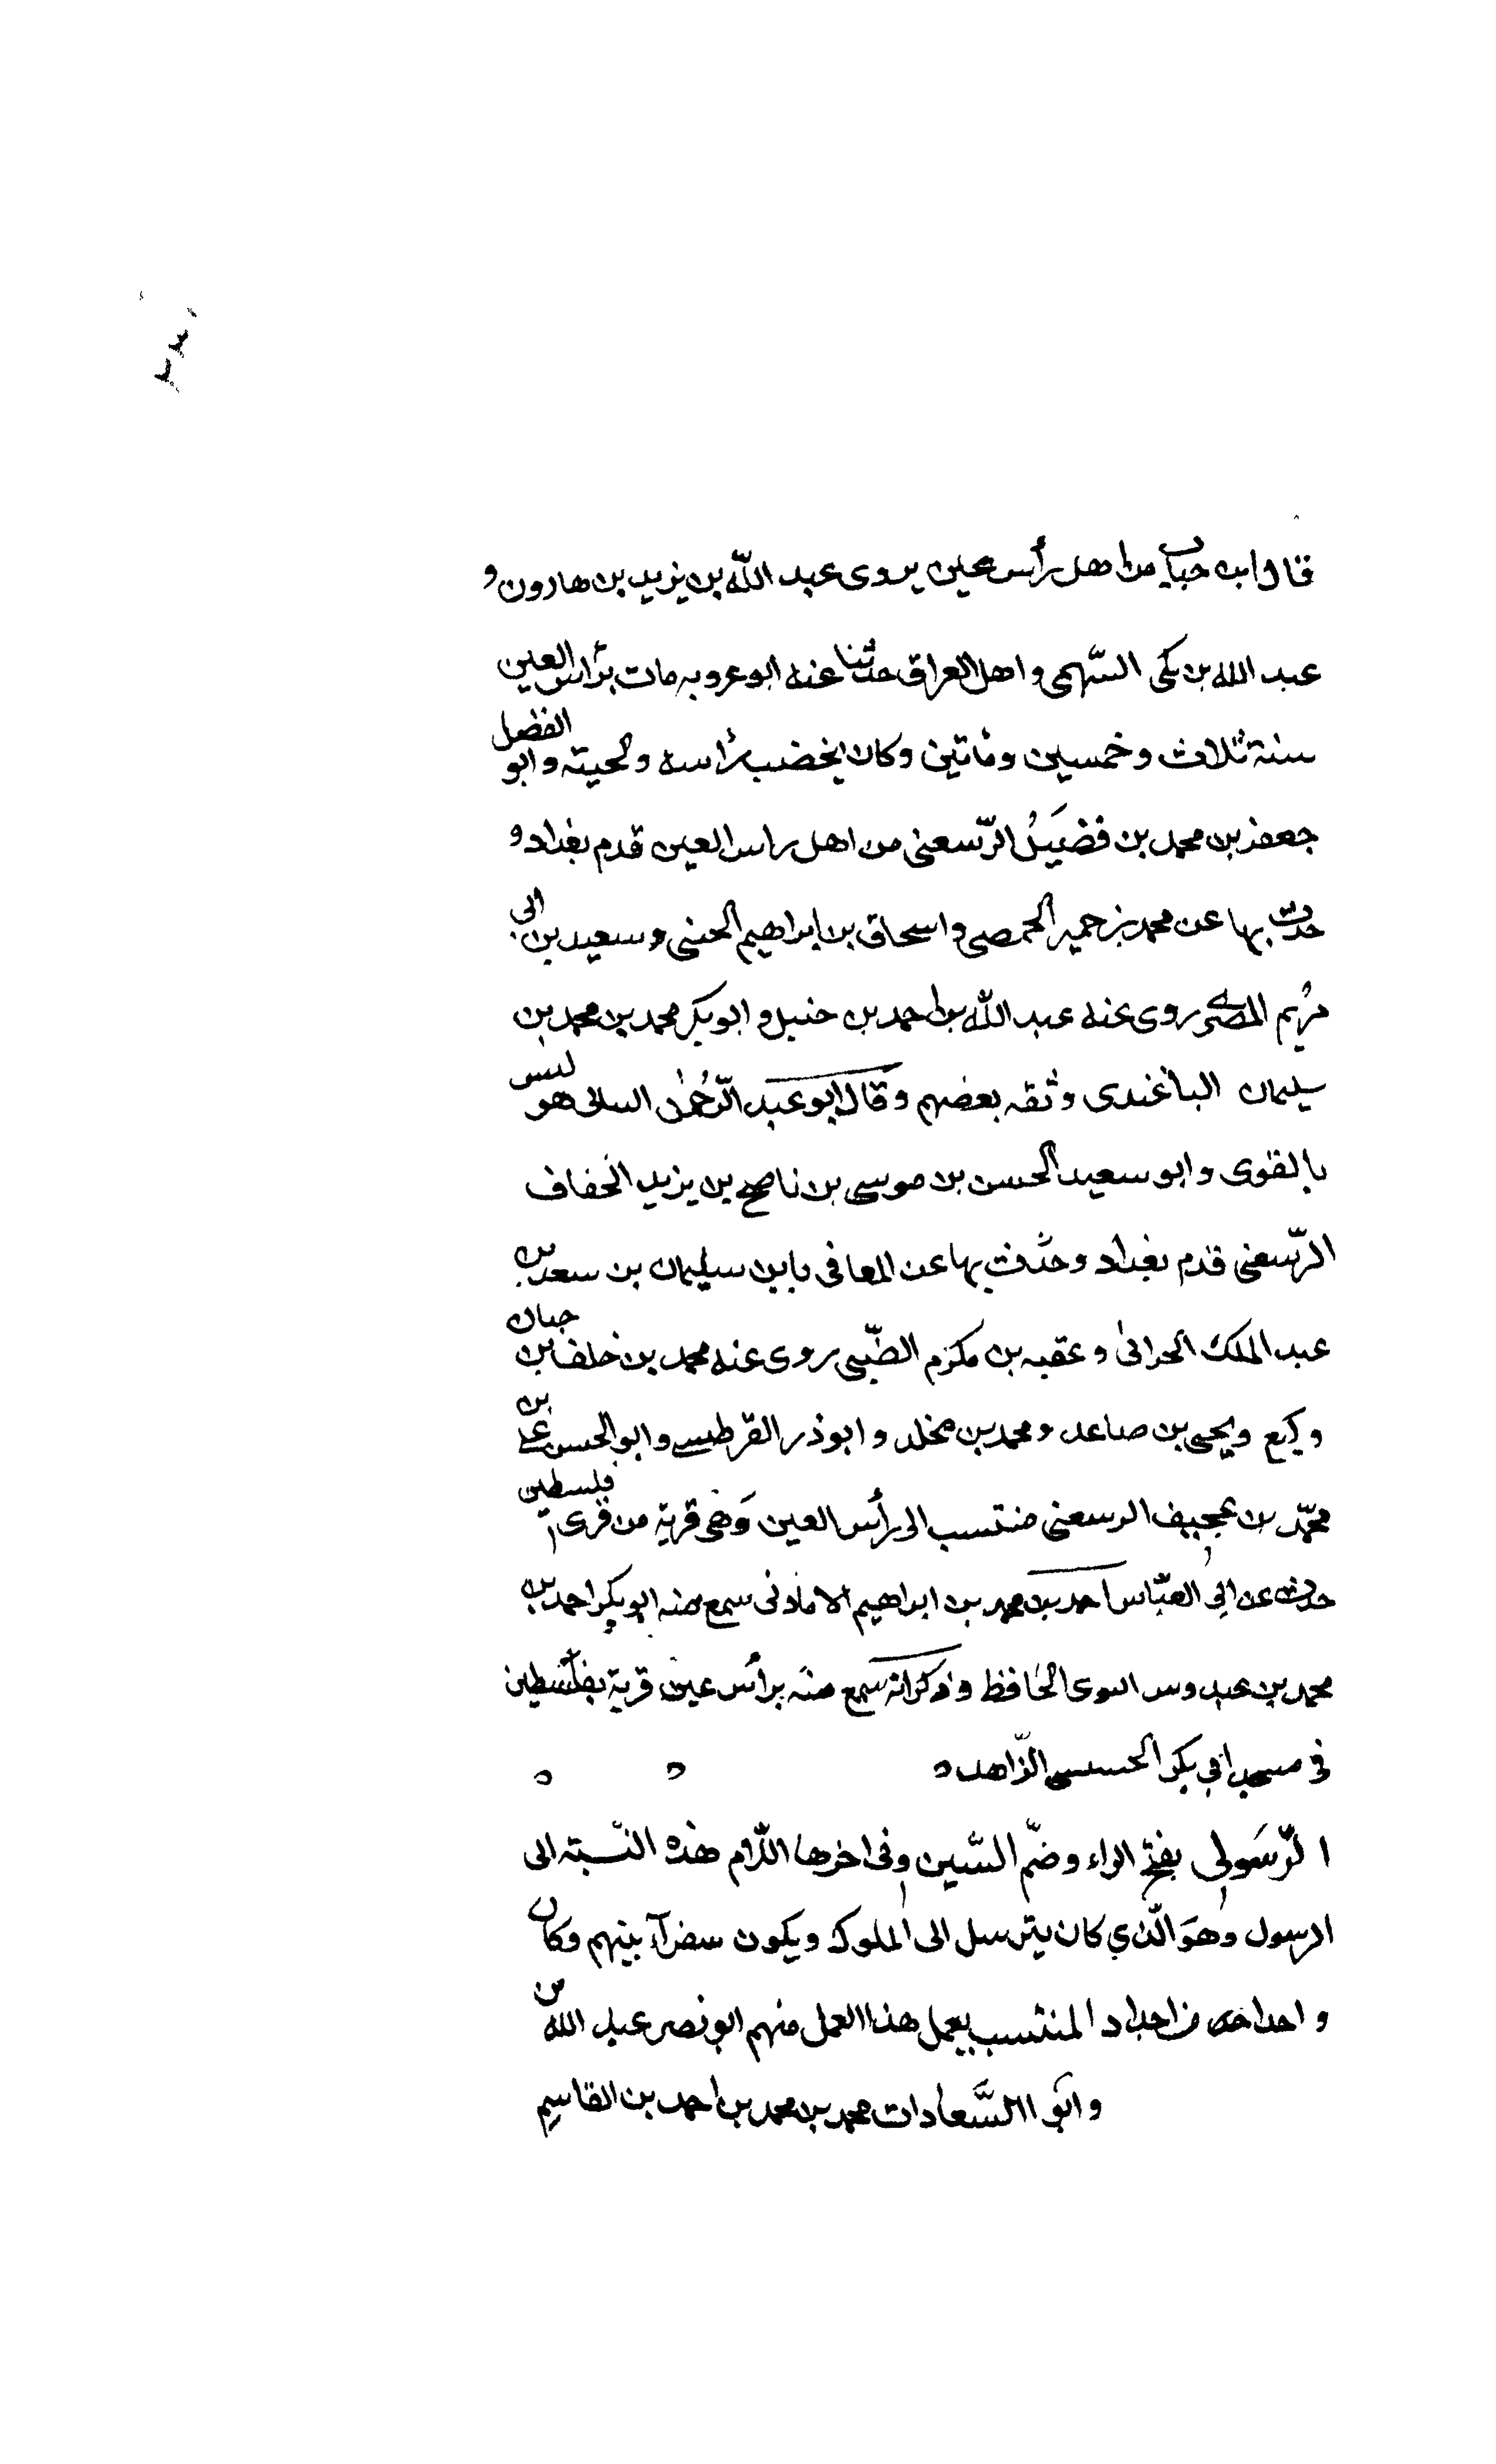 قال ابن حبان من اهل رأس عين يروى عبد الله بن يزيد بن هارون و
عبد الله بن بكى السّهمى و اهل العراق حدثنا عنه ابو عروبه مات برأس العين
سنة ثلاث و خمسين و مأتين وكان يخضب رأسه و لحيته و ابو الفضل
جعفر بن محمد بن فضَيل الرّسعنى من اهل راس العين قدم بغداد و
حدث بها عن محمد بن حمير الحمصى و اسحاق بن ابراهيم الحنينى و سعيد بن ابى
مريم المصرى روى عنه عبد الله بن احمد بن حنبل و ابو بكر محمد بن محمد بن
سليمان الباغندى وثقه بعضهم و قال ابو عبد الرّحمن السالى هو ليس
بالقوى و ابو سعيد الحسن بن موسى بن ناصح بن يزيد الخفاف
الرّسعنى قدم بغداد و حدّث بها عن المعافى بابن سليمان بن سعد بن
عبد الملك الحرانى و عقبه بن مكرم الضّبى روى عنه محمد بن خلف بن جبان
وكيع و يحيى بن صاعد و محمد بن مخلد و ابو ذر القرطسى و ابو الحسن على بن
محمّد بن عجيف الرسعنى منتسب الى رأس العين وَهى قرية من قرى فلسطين
حدث عن ابى العبّاس احمد بن محمد بن ابراهيم الامادنى سمع منه ابو بكر احمد بن
محمد بن عبدوس السوى الحافظ و ذكر انه سمع منه برأس عين قرية بفلسطين
فى مسجد ابى بكر الحسسى الزّاهد ه ه ه
الرَّسَولى بفتح الراء و ضمّ السّين و فى اخرها اللّام هذه النّسبة الى
الرسول وهوَ الّذي كان يترسل الى الملوك و يكون سفرآء بينهم وكان
و احدا من اجداد المنتسب يعمل هذا العمل منهم ابو نصر عبد الله بن
و ابَو االسَّعادات محمد بن محمد بن احمد بن القاسم